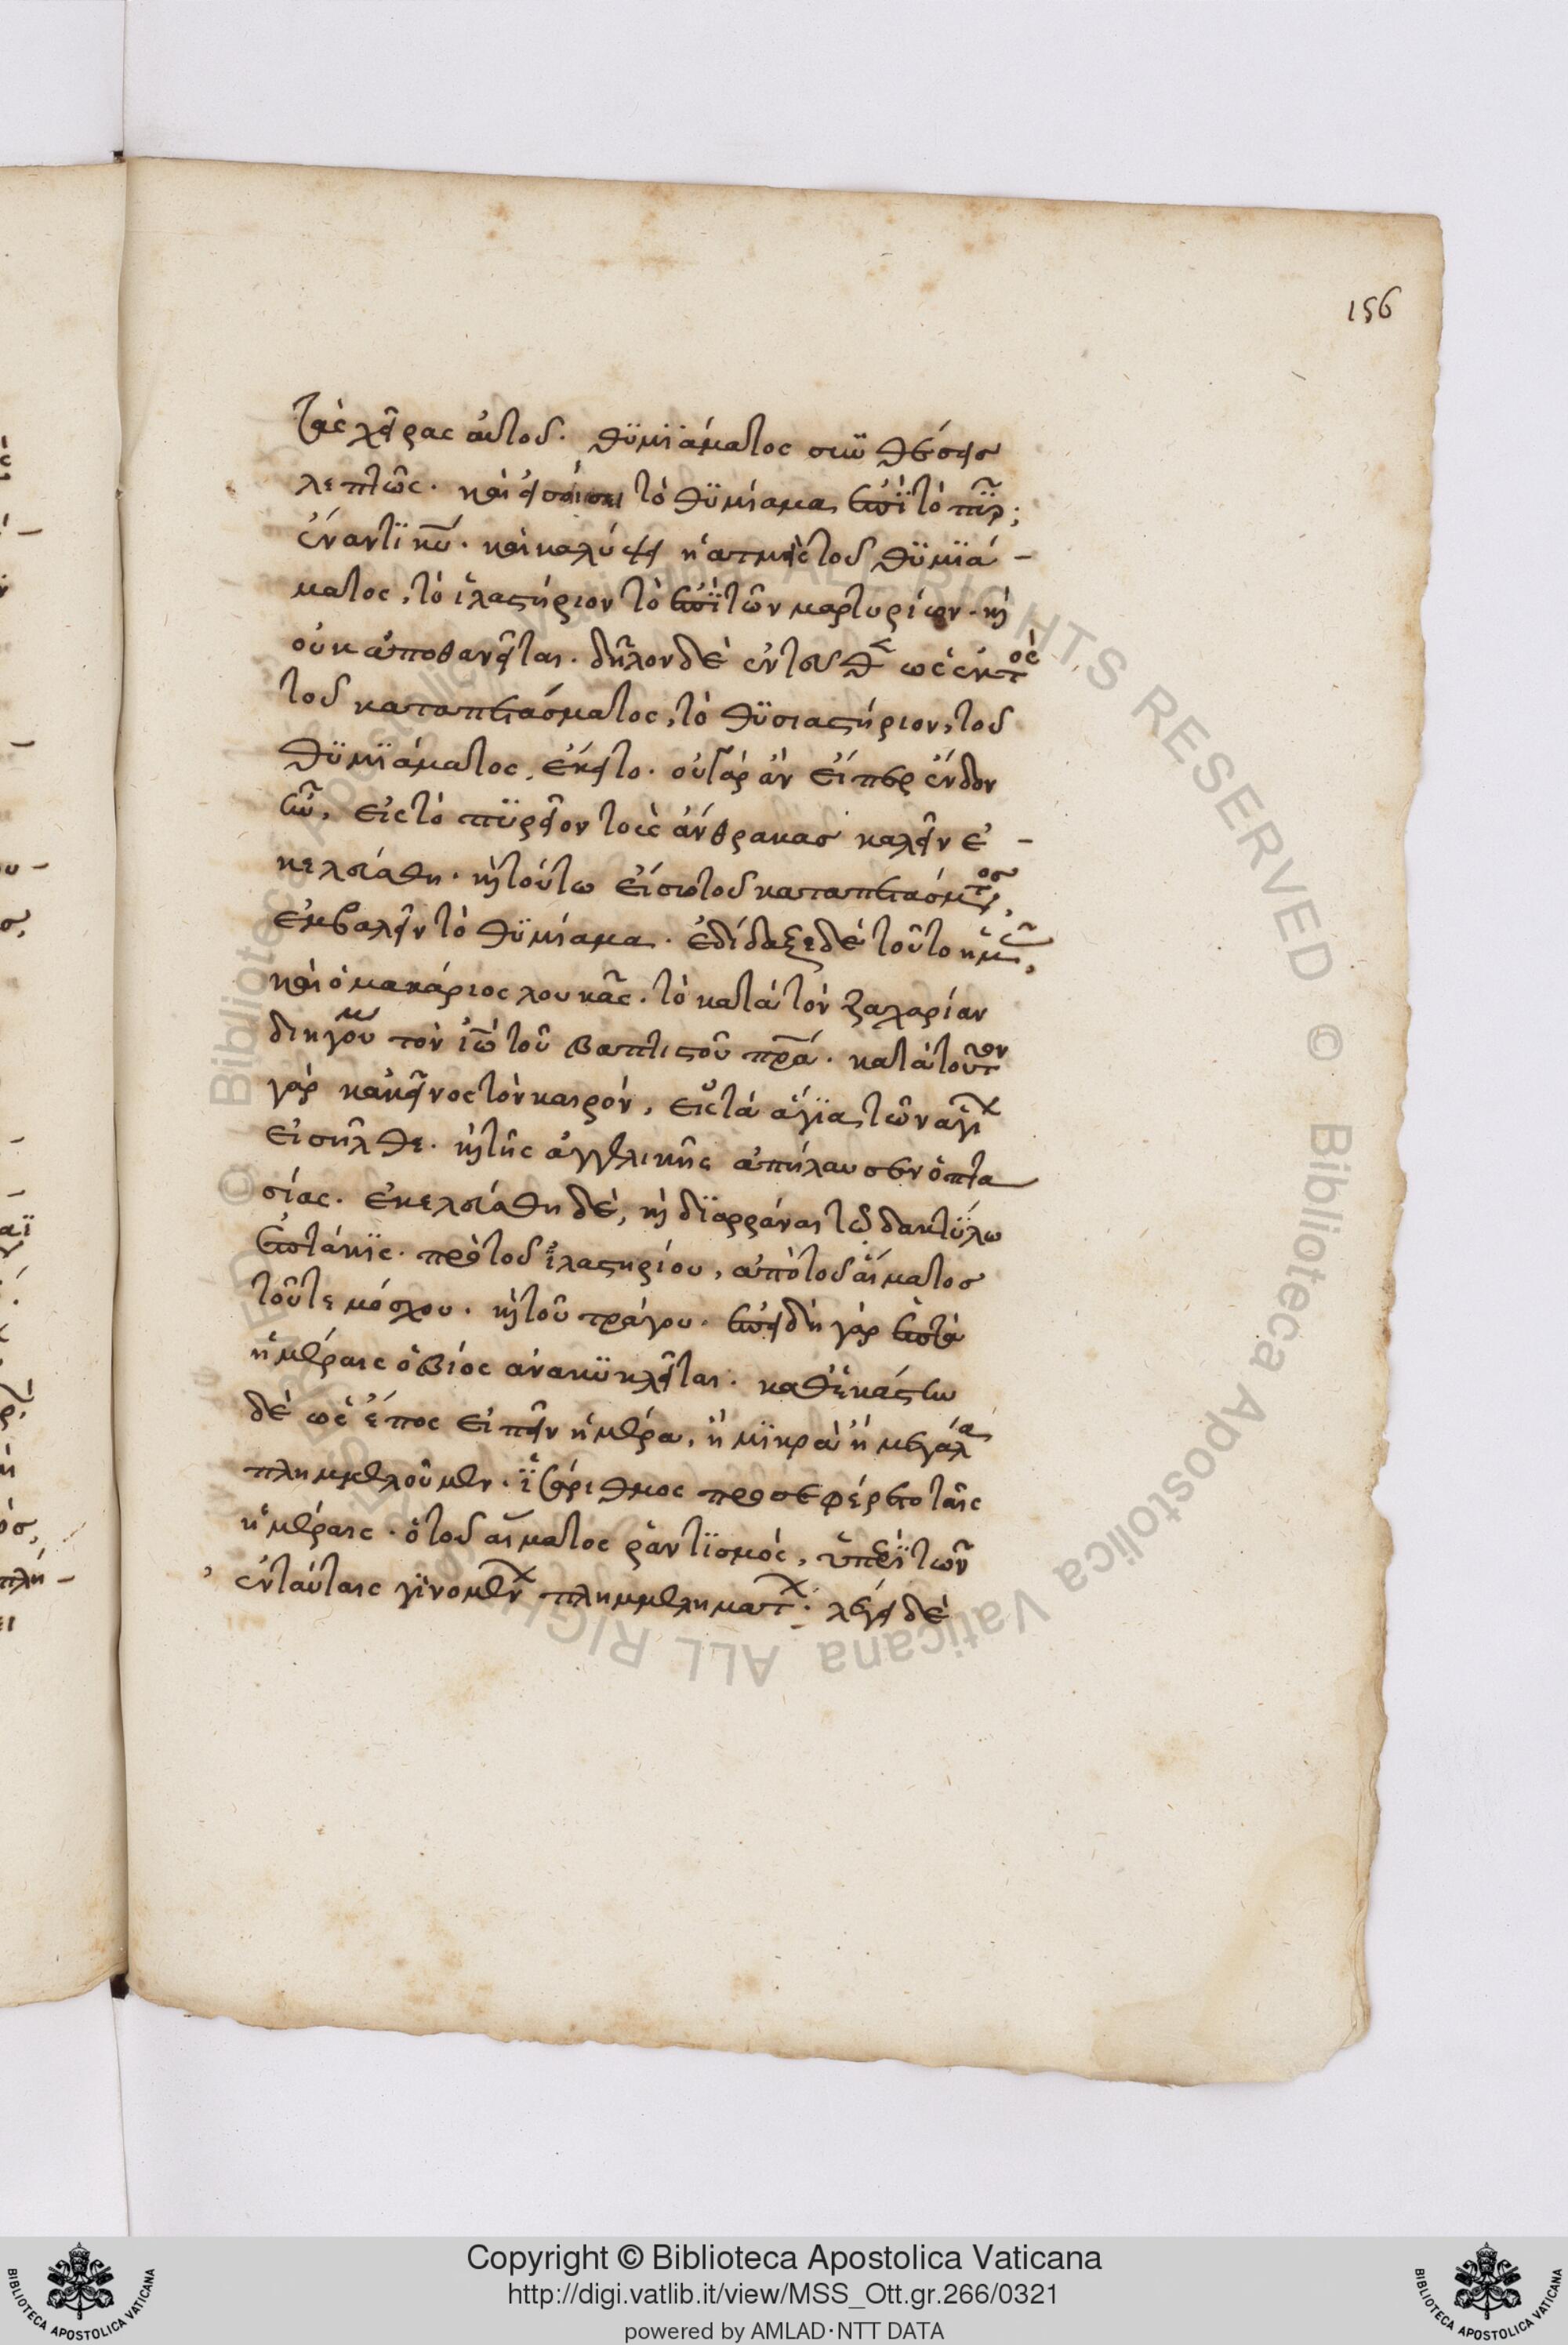 156
τὰς χεῖρας αὐτοῦ. θϋμϊάματος συνθέσεως
λεπτῶς. καὶ εἰσοίσει τὸ θϋμίαμα ἐπῒ τὸ πῦρ,
ἐναντϊ κυ. καὶ καλύψει ἡ ἀτμὶς τοῦ θϋμϊά-
ματος, τὸ ἱλαστήριον τὸ ἐπῒ τῶν μαρτυρίων. καὶ
οὐκ ἀποθανεῖται. δῆλον δὲ ἐντεῦθ ὡς ἐκτὸς
τοῦ καταπετάσματος, τὸ θϋσιαστήριον, τοῦ
θϋμϊάματος, ἔκειτο. οὐ γὰρ ἂν εἴπερ ἔνδον
ἦν, εἰς τὸ πϋρεῖον τοὺς ἄνθρακασ βαλεῖν ἐ-
κελεύσθη. καὶ τούτω εἴσω τοῦ καταπετάσμτος,
ἐμβαλεῖν τὸ θϋμίαμα. ἐδίδαξε δὲ τοῦτο ἡμᾶς,
καὶ ὁ μακάριος λουκᾶς. τὸ κατὰ τὸν ζαχαρίαν
διηγούμ τὸν ἰῶ τοῦ βαπτιστοῦ πρα. κατὰ τοῦτον
γὰρ κἀκεῖνος τὸν καιρόν, εἰς τὰ ἅγϊα τῶν ἁγι
εἰσῆλθε. καὶ τῆς ἀγγελικῆς ἀπήλαυσεν ὀπτα
σίας. ἐκελεύσθη δὲ, καὶ δϊαρράναι τῶ δακτϋλω
ἑπτάκϊς. πρὸ τοῦ ἱλαστηρίου, ἀπὸ τοῦ αἵματοσ
τοῦ τε μόσχου. καὶ τοῦ τράγου. ἐπειδὴ γὰρ ἑπτὰ
ἡμέραις ὁ βίος ἀνακϋκλεῖται. καθἑκάστην
δὲ ὡς ἔπος εἰπεῖν ἡμέραν, ἢ μϊκρὰ ἢ μεγάλα
πλημμελοῦμεν. ἰσάριθμος προσεφέρετο ταῖς
ἡμέραις. ὁ τοῦ αἵματος ῥαντϊσμός, ὑπὲρ τῶν
ἐν ταύταις γϊνομέν πλημμελημάτ. λέγει δὲ
Copyright © Biblioteca Apostolica Vaticana
http://digi.vatlib.it/view/MSS_Ott.gr.266/0321
powered by AMLAD·NTT DATA